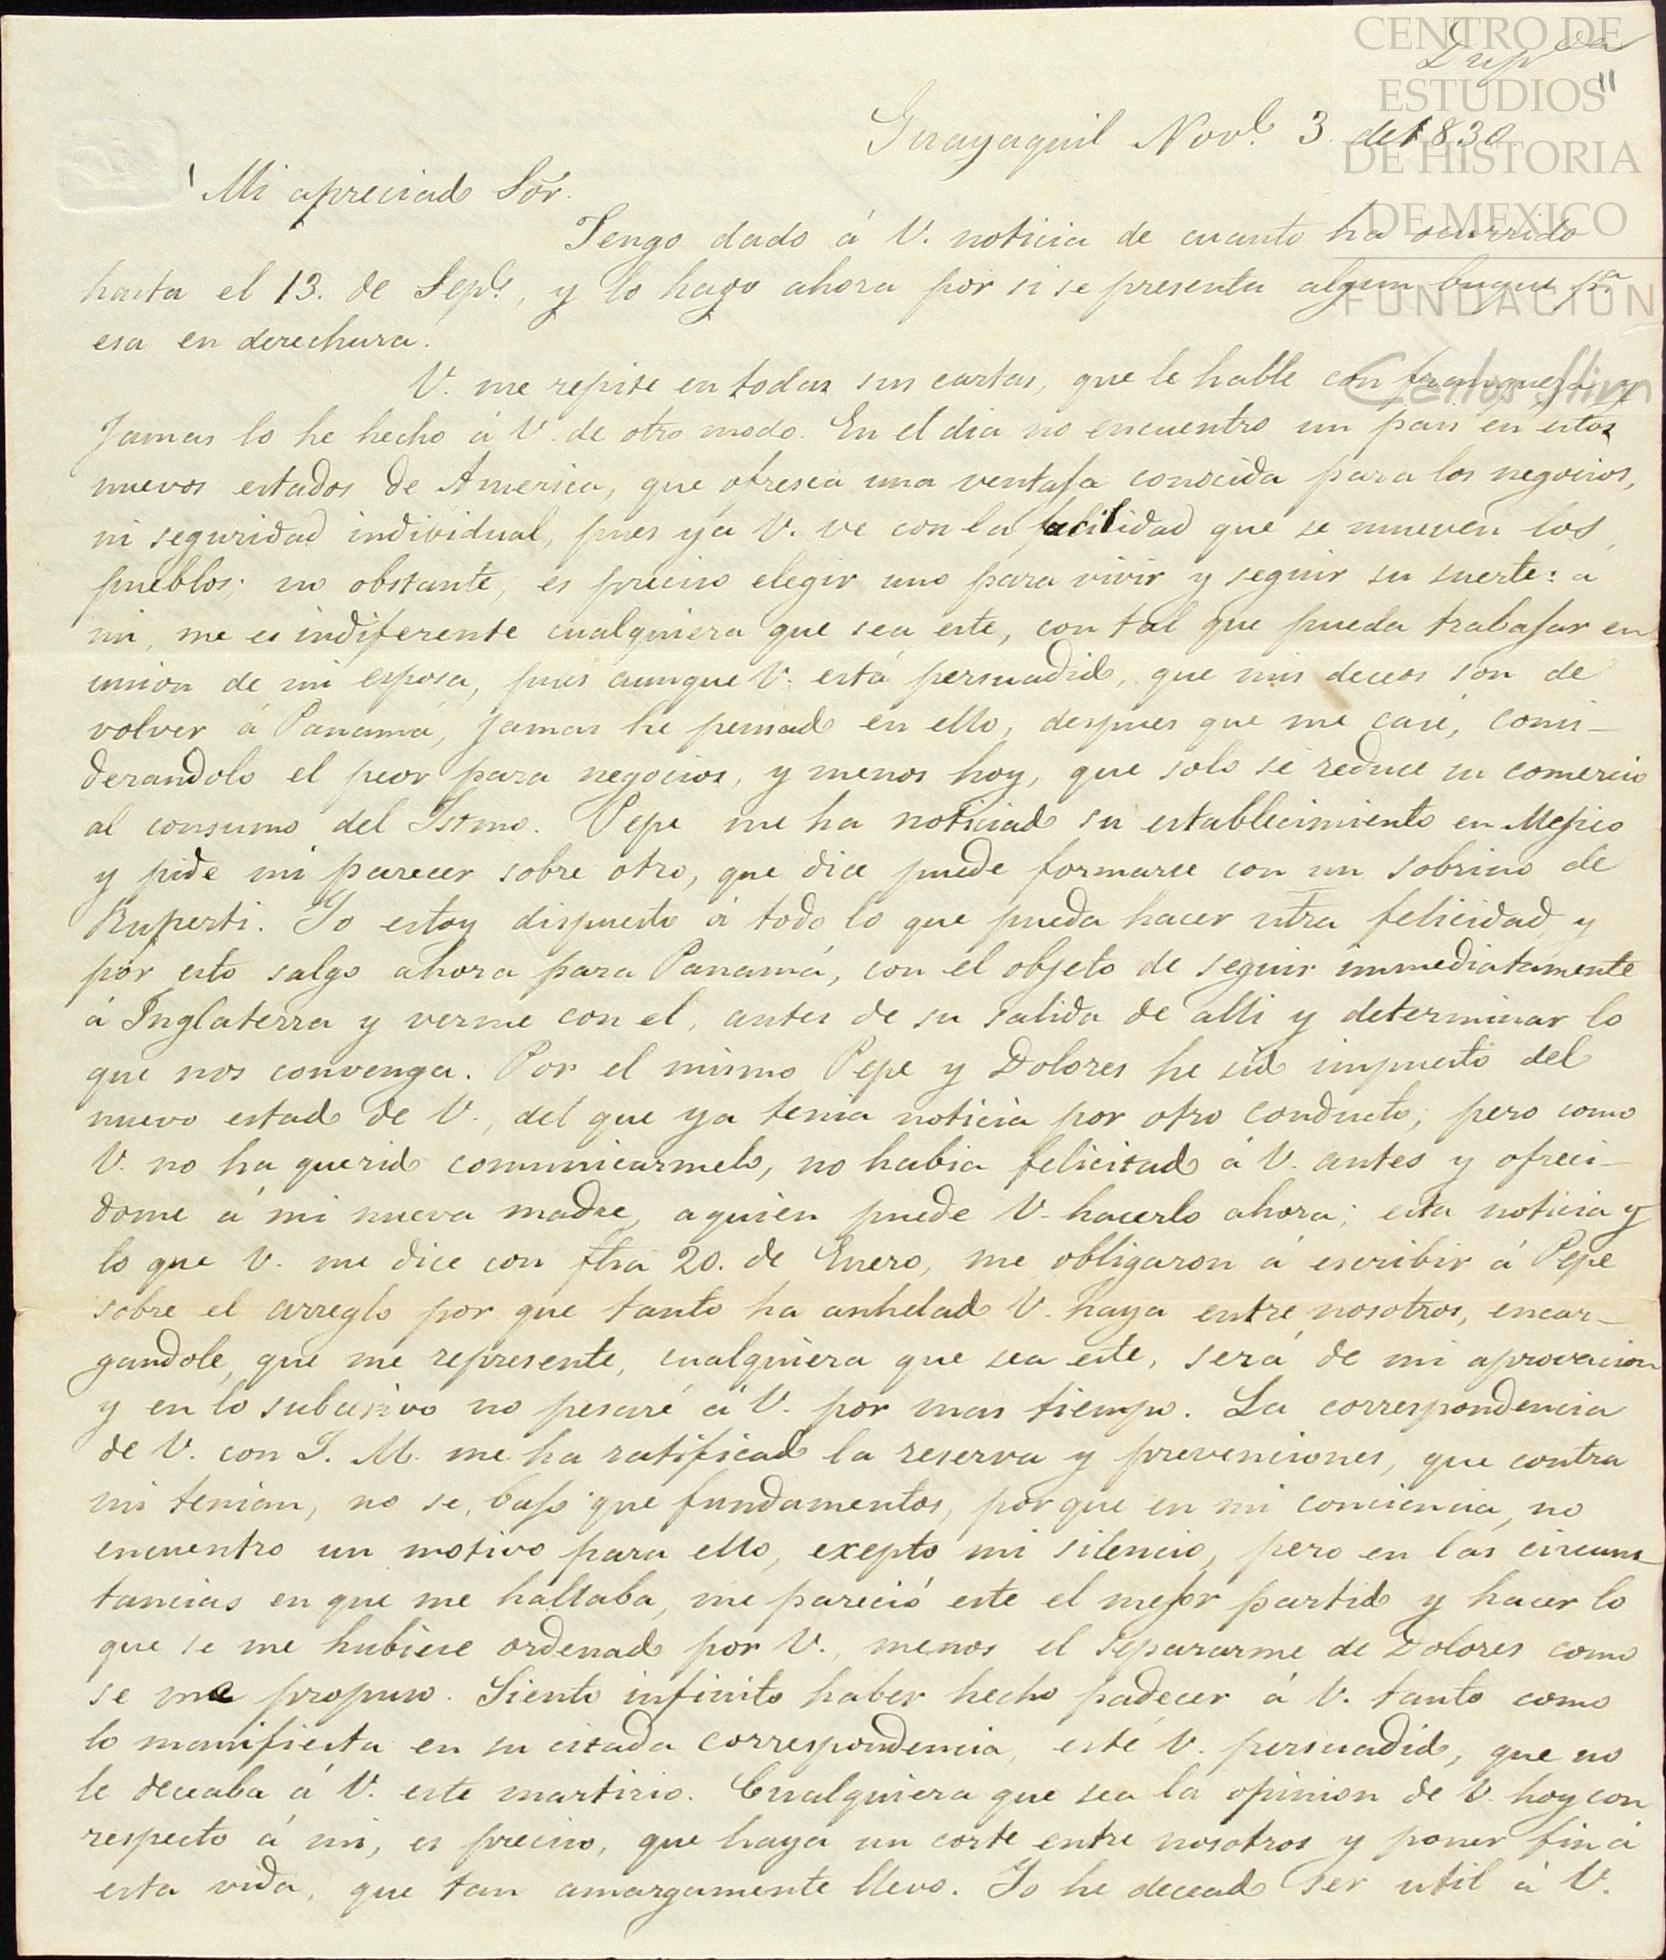 CENTRO DE
ESTUDIOS
DE HISTORIA
DE MEXICO
FUNDACIÓN
Carlos Slim
Dup.da
Guayaquil Nov.e 3. de 1830
Mi apreciado Sōr.
Tengo dado á V. noticia de cuanto ha ocurrido
hasta el 13. de Sep.e, y lo hago ahora por si se presenta algun buque p.a
esa en derechura.
V. me repite en todas sus cartas, que le hable con franqueza y
Jamas lo he hecho á V. de otro modo. En el dia no encuentro un pais en estos
nuevos estados de America, que ofresca una ventaja conocida para los negocios,
ni seguridad individual, pues ya V. ve con la facilidad que se mueven los
pueblos; no obstante, es preciso elegir uno para vivir y seguir su suerte: a
mi, me es indiferente cualquiera que sea este, con tal que pueda trabajar en
union de mi esposa, pues aunque V. está persuadido, que mis deceos son de
volver á Panamá, jamas he pensado en ello, despues que me casé, consi-
derandolo el peor para negocios, y menos hoy, que solo se reduce su comercio
al consumo del Istmo. Pepe me ha noticiado su establecimiento en Mejico
y pide mi parecer sobre otro, que dice puede formarse con un sobrino de
Ruperti. Yo estoy dispuesto á todo lo que pueda hacer ntra felicidad y
por esto salgo ahora para Panamá, con el objeto de seguir immediatamente
á Inglaterra y verme con el, antes de su salida de alli y determinar lo
que nos convenga. Por el mismo Pepe y Dolores he sido impuesto del
nuevo estado de V., del que ya tenia noticia por otro conducto; pero como
V. no ha querido comunicarmelo, no habia felicitado á V. antes y ofreci-
dome á mi nueva madre, a quien puede V. hacerlo ahora; esta noticia y
lo que V. me dice con fha 20. de Enero, me obligaron á escribir á Pepe
sobre el arreglo por que tanto ha anhelado V. haya entre nosotros, encar-
gandole, que me represente, cualquiera que sea este, será de mi aprovacion
y en lo subcesivo no pesaré á V. por mas tiempo. La correspondencia
de V. con J. M. me ha ratificado la reserva y prevenciones, que contra
mi tenian, no se, bajo que fundamentos, por que en mi conciencia, no
encuentro un motivo para ello, exepto mi silencio, pero en las circuns-
tancias en que me hallaba, me pareció este el mejor partido y hacer lo
que se me hubiese ordenado por V., menos el separarme de Dolores como
se me propuso. Siento infinito haber hecho padecer á V. tanto como
lo manifiesta en su citada correspondencia, esté V. persuadido, que no
le deceaba á V. este martirio. Cualquiera que sea la opinion de V. hoy con
respecto á mi, es preciso, que haya un corte entre nosotros y poner fin á
esta vida, que tan amargamente llevo. Yo he deceado ser util á V.